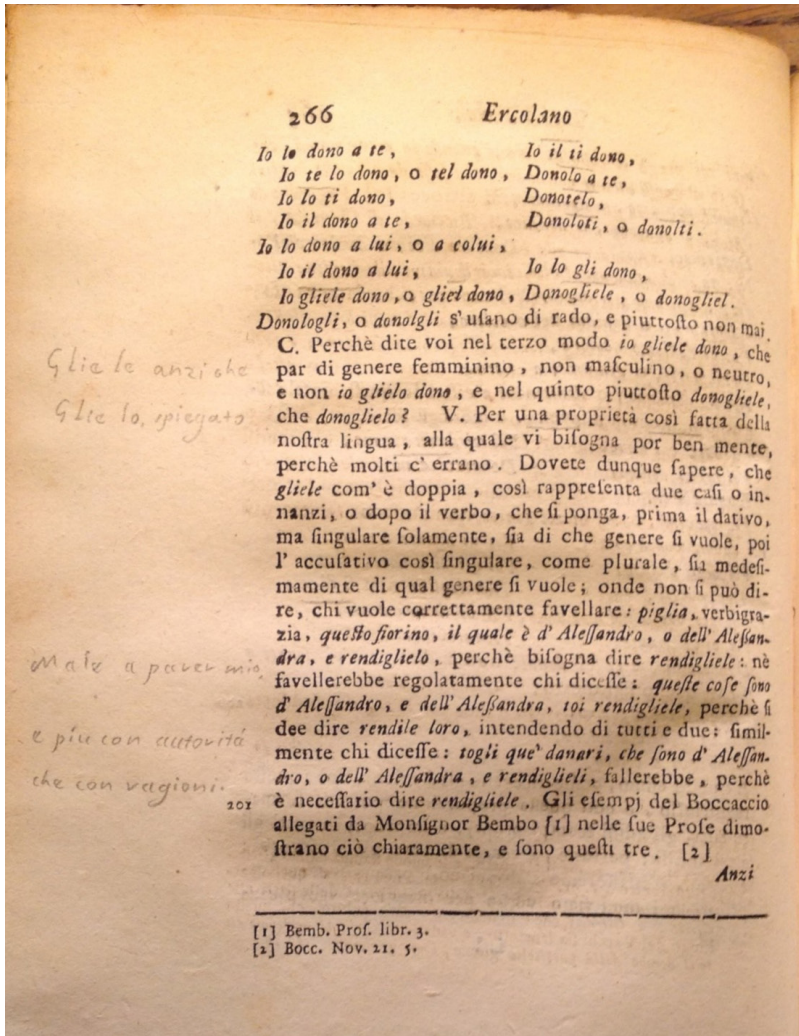 266 Ercolano
Io lo dono a te, Io il ti dono,
Io te lo dono, o tel dono, Donolo a te,
Io lo ti dono, Donotelo,
Io il dono a te, Donoloti, o donolti.
Io lo dono a lui, o a colui,
Io il dono a lui, Io lo gli dono,
Io gliele dono, o gliel dono, Donogliele, o donogliel.
Donologli, o donolgli s' uſano di rado, e piuttoſto non mai
C. Perchè dite voi nel terzo modo io gliele dono, che
Glie le anzi che
par di genere femminino, non maſculino, o neutro,
e non io glielo dono, e nel quinto piuttoſto donogliele,
Glie lo, spiegato
che donoglielo? V. Per una proprietà così fatta della
noſtra lingua, alla quale vi biſogna por ben mente,
perchè molti c' errano. Dovete dunque ſapere, che
gliele com' è doppia, così rappreſenta due caſi o in-
nanzi, o dopo il verbo, che ſi ponga, prima il dativo,
ma ſingulare ſolamente, ſia di che genere ſi vuole, poi
l' accuſativo così ſingulare, come plurale, ſia medeſi-
mamente di qual genere ſi vuole; onde non ſi può di-
re, chi vuole correttamente favellare: piglia, verbigra-
zia, queſto fiorino, il quale è d' Aleſſandro, o dell' Aleſſan-
dra, e rendiglielo, perchè biſogna dire rendigliele: nè
Male a parer mio,
favellerebbe regolatamente chi diceſſe: queſte coſe ſono
d' Aleſſandro, e dell' Aleßandra, toi rendigliele, perchè ſi
dee dire rendile loro, intendendo di tutti e due: ſimil-
e piu con autorità
mente chi diceſſe: togli que' danari, che ſono d' Aleſſan-
dro, o dell' Aleſſandra, e rendiglieli, fallerebbe, perchè
che con ragioni.
201 è neceſſario dire rendigliele. Gli eſempj del Boccaccio
allegati da Monſignor Bembo [1] nelle ſue Proſe dimo-
ſtrano ciò chiaramente, e ſono queſti tre. [2]
Anzi
[1] Bemb. Proſ. libr. 3.
[2] Bocc. Nov. 21. 5.